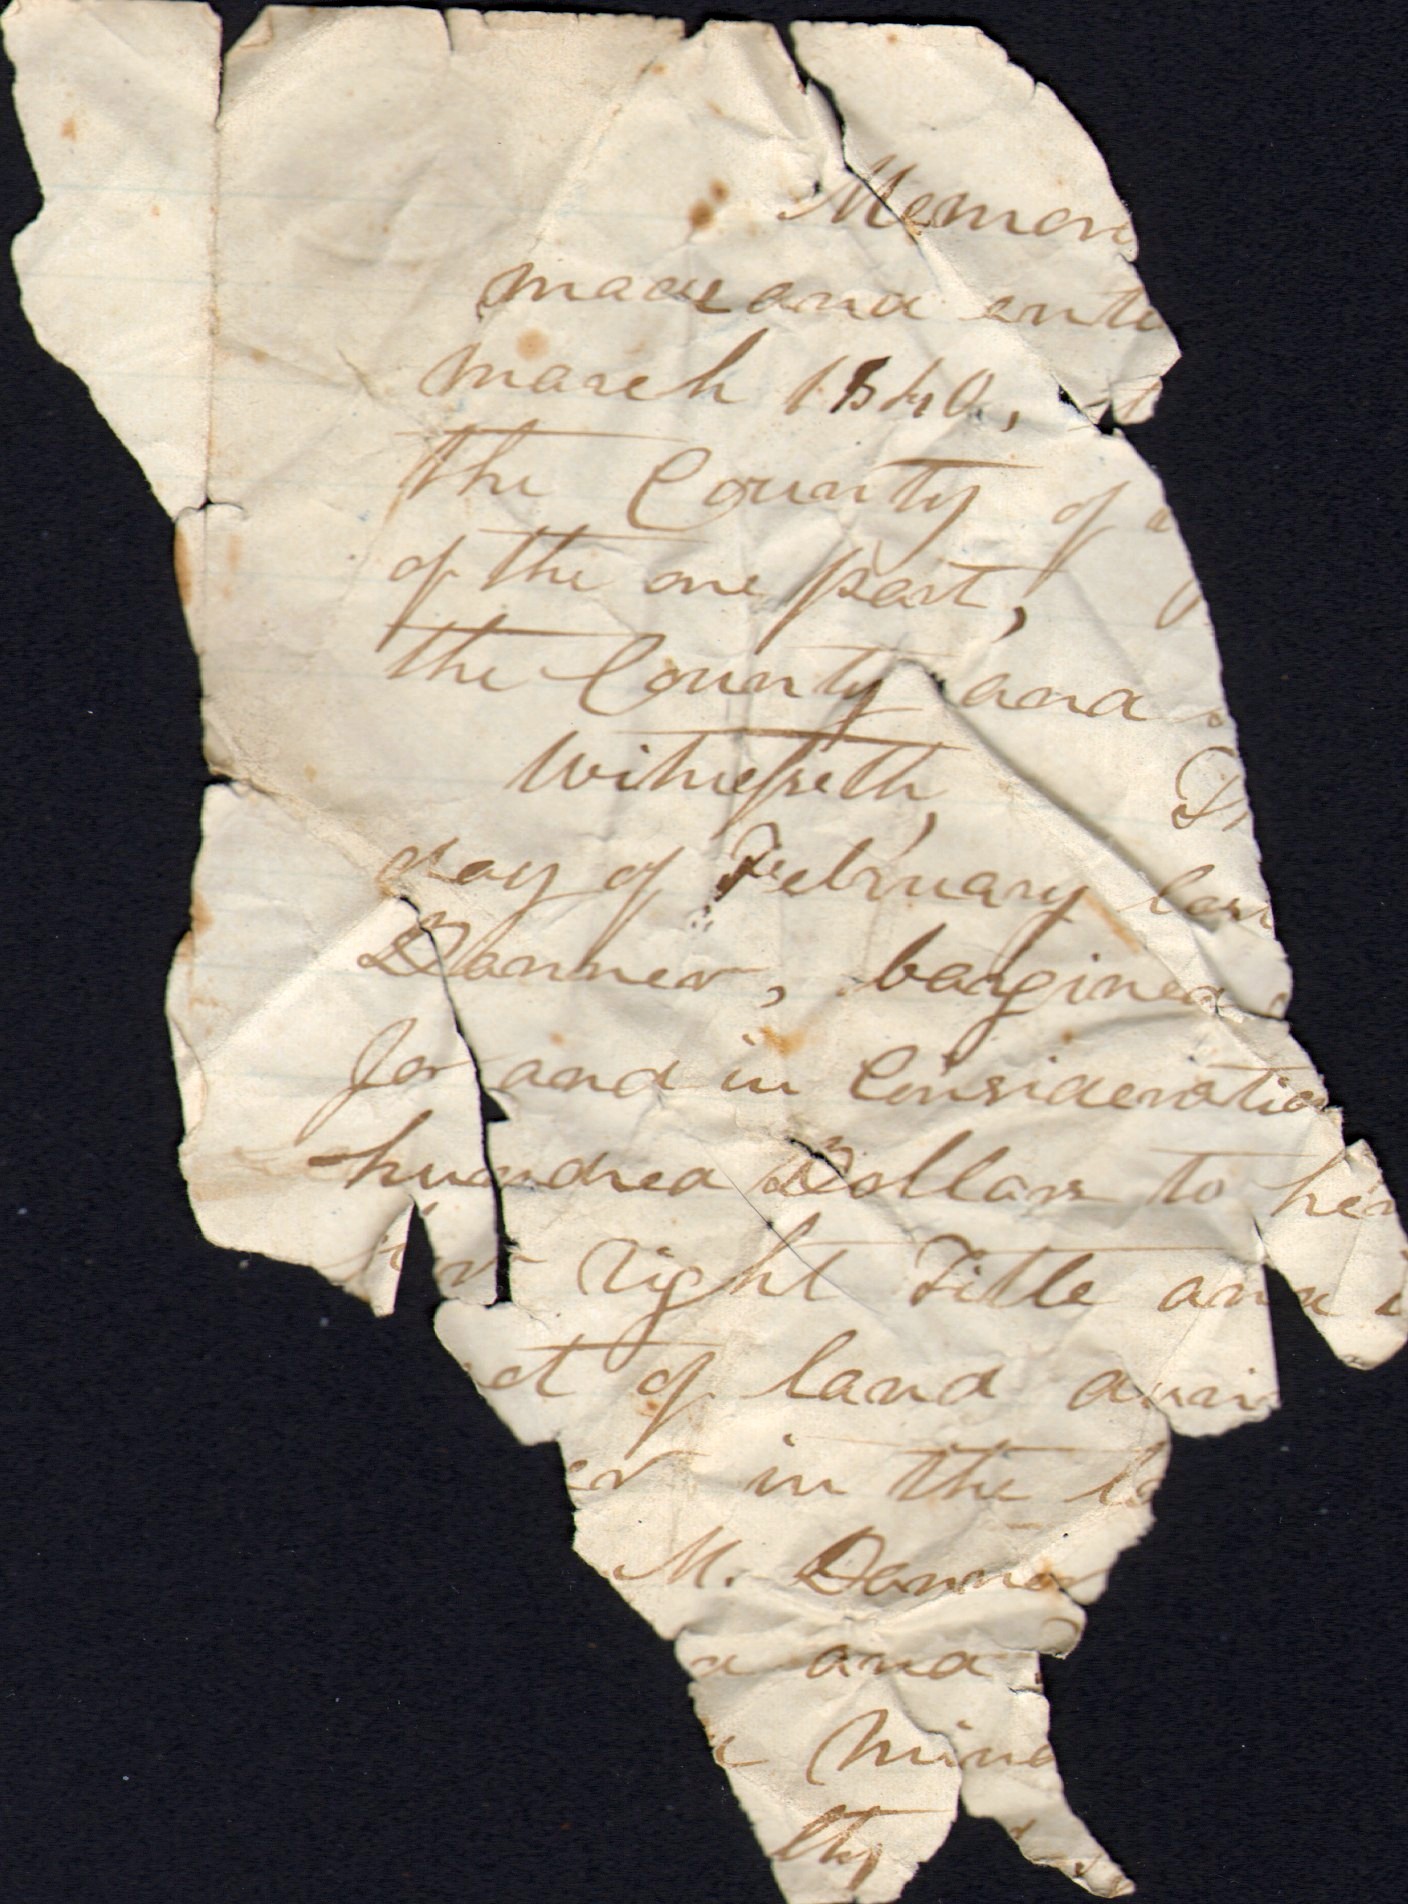 Memor
made and ente
march 1840,
the County of
of the one part,
the County and
Witnesseth,
day of February las
Danner, bargined
for and in Consideratio
hundred Dollars to her
right Title and
ct of land duri
er in the
M. Danner
and
mine
lty